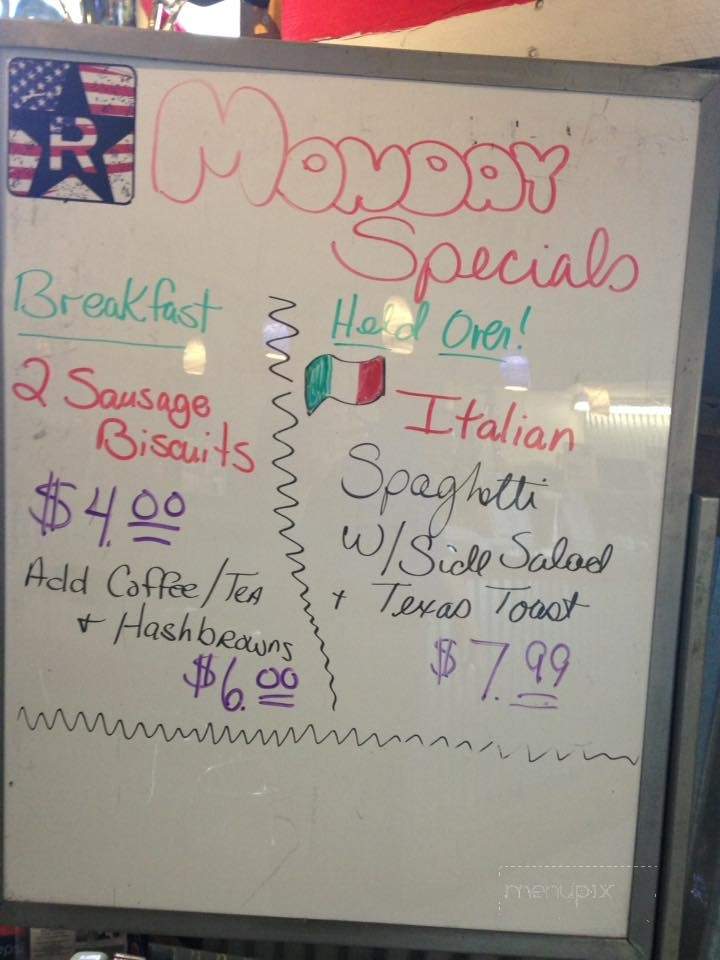 R
Monday
Specials
Breakfast
2 Sausage
Biscuits
$4.00
Add Coffee/Tea
+ Hashbrowns
$6.00
Held Over!
Italian
Spaghetti
W/Side Salad
+ Texas Toast
$7.99
menupix